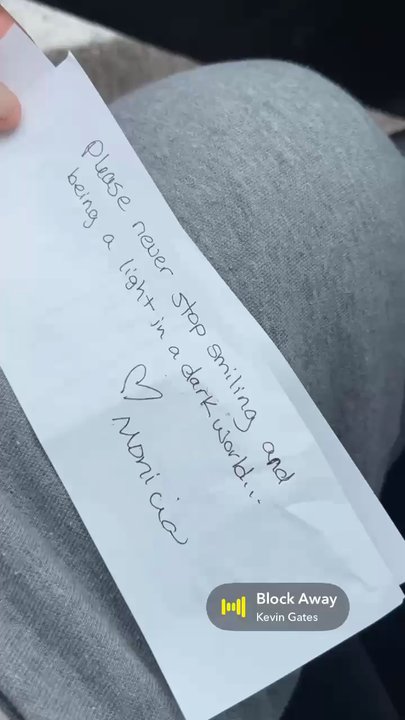 Please never stop smiling and
being a light in a dark world...
♡ Monicia
Block Away
Kevin Gates